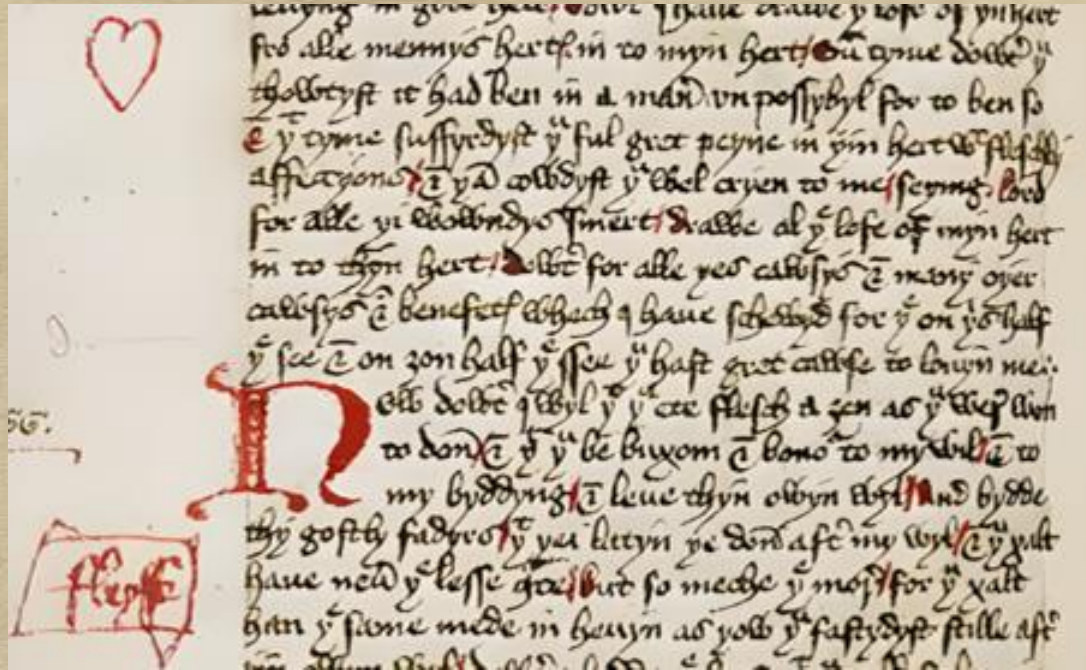 fro alle mennys hert in to myn hert / Su tyme dowt yu
thowtyst it had ben in a man vnpossybyl for to ben so
& yt tyme suffyrdyst yu ful gret peyne in yin hert wt fleschly
affectyons / & yan cowdyst yu wel cryen to me / seying. lord
for alle yi wowndys smert / drawe al ye lofe of myn hert
in to thyn hert / dowt for alle yes cawsys & many oyer
cawsys & benefet whech I haue schewyd for ye on yis half
ye see & on ȝon half ye ssee yu hast gret cawse to louyn me
Now dowt I wyl yt yu ete flesch a ȝen as yu wer won
to don / & yt yu be buxom & bono to my wil / & to
my byddyng / & leue thyn owyn wyl / And bydde
thy gostly fadyrs / yt yei lettyn ye don aft my wyl / & yu xalt
haue neu ye lesse gre / but so meche ye mor / for yu xalt
han ye same mede in heuyn as yow yu fastydyst stille aft
66.
flesch